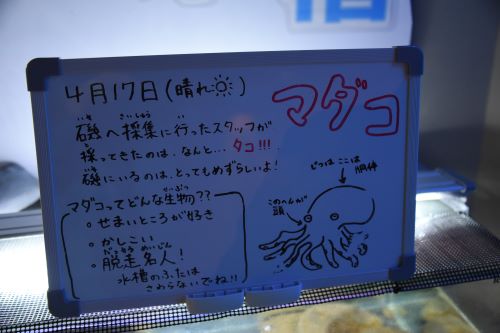 4月17日(晴れ)
マダコ
磯へ採集に行ったスタッフが
採ってきたのは、なんと… タコ!!!
磯にいるのは、とってもめずらしいよ!
マダコってどんな生物??
・せまいところが好き
・かしこい!
・脱走名人!
水槽のふたは
さわらないでね!!
じつは ここは
胴体
このへんが
頭